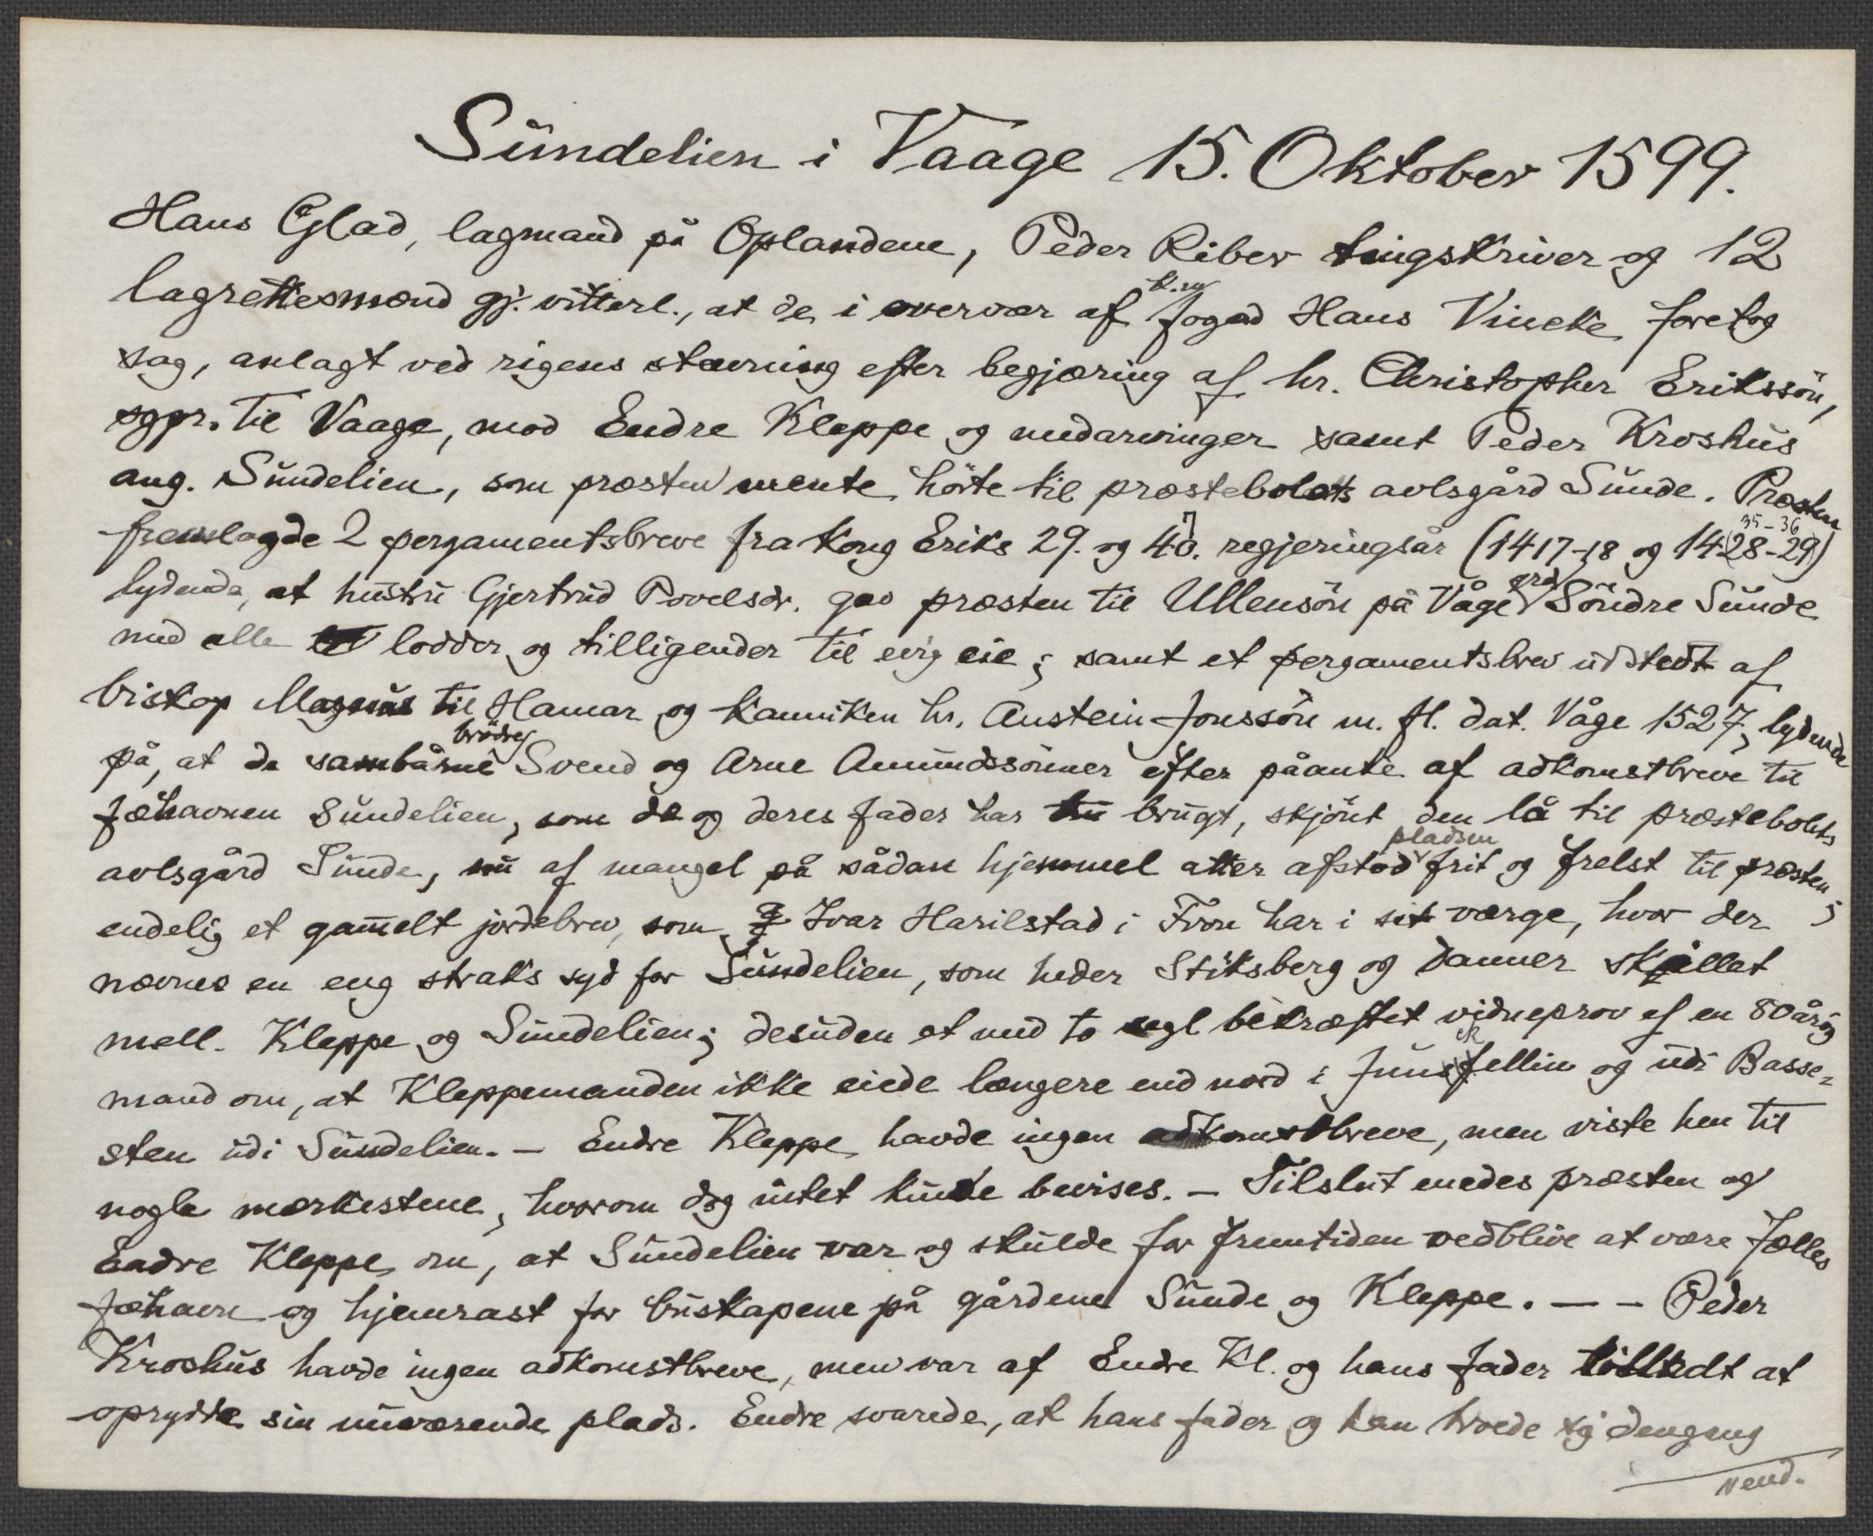 Sundelien i Vaage 15. Oktober 1599.
Hans Glad, lagmand på Oplandene, Peder Riber tingskriver og 12
lagrettesmænd gj. vitterl., at de i overvær af fogad Hans Vincke foretog
sag, anlagt ved rigens stævning efter begjæring af hr. Christopher Erikssön,
sgpr. til Vaage, mod Endre Kleppe og medarvinger samt Peder Kroshus
ang. Sundelien, som præsten mente hörte til præstebolets avlsgård Sunde. Præsten
35-36
fremlagde 2 pergamentsbreve fra Kong Eriks 29. og 47. regjeringsår (1417-18 og 1428-29)
lydende, at hustru Gjertrud Povelsdr. gav præsten til Ullensön på Våge grd Söndre Sunde
med alle lodder og tilligender til evig eie; samt et pergamentsbrev udstedt af
biskop Magnus til Hamar og kanniken hr. Austein Jonssön m. fl. dat. Våge 1527, lydende
på, at de sambårne brödre Svend og Arne Amundssönner efter påanke af adkomstbreve til
fæhavnen Sundelien, som de og deres fader har brugt, skjönt den lå til præstebolets
avlsgård Sunde, nu af mangel på sådan hjemmel atter afstod pladsen frit og frelst til præsten;
endelig et gammelt jordebrev, som Ivar Harilstad i Fron har i sit værge, hvor der
nævnes en eng straks syd for Sundelien, som heder Stiksberg og danner skjællet
mell. Kleppe og Sundelien; desuden et med to segl bekræftet vidneprov af en 80 årig
mand om, at Kleppemanden ikke eiede længere end nord i fellin og udi Basse-
sten udi Sundelien. - Endre Kleppe havde ingen adkomstbreve, men viste hen til
nogle merkestene, hvorom dog intet kunde bevises. - Tilslut enedes præsten og
Endre Kleppe om, at Sundelien var og skulde for fremtiden vedblive at være fælles
fæhavn og hjemrast for buskapene på gårdene Sunde og Kleppe. - - Peder
Kroshus havde ingen adkomstbreve, men var af Endre Kl. og hans fader tilledt at
oprydde sin nuværende plads. Endre svarede, at hans fader og han troede sig dengang
Vend.